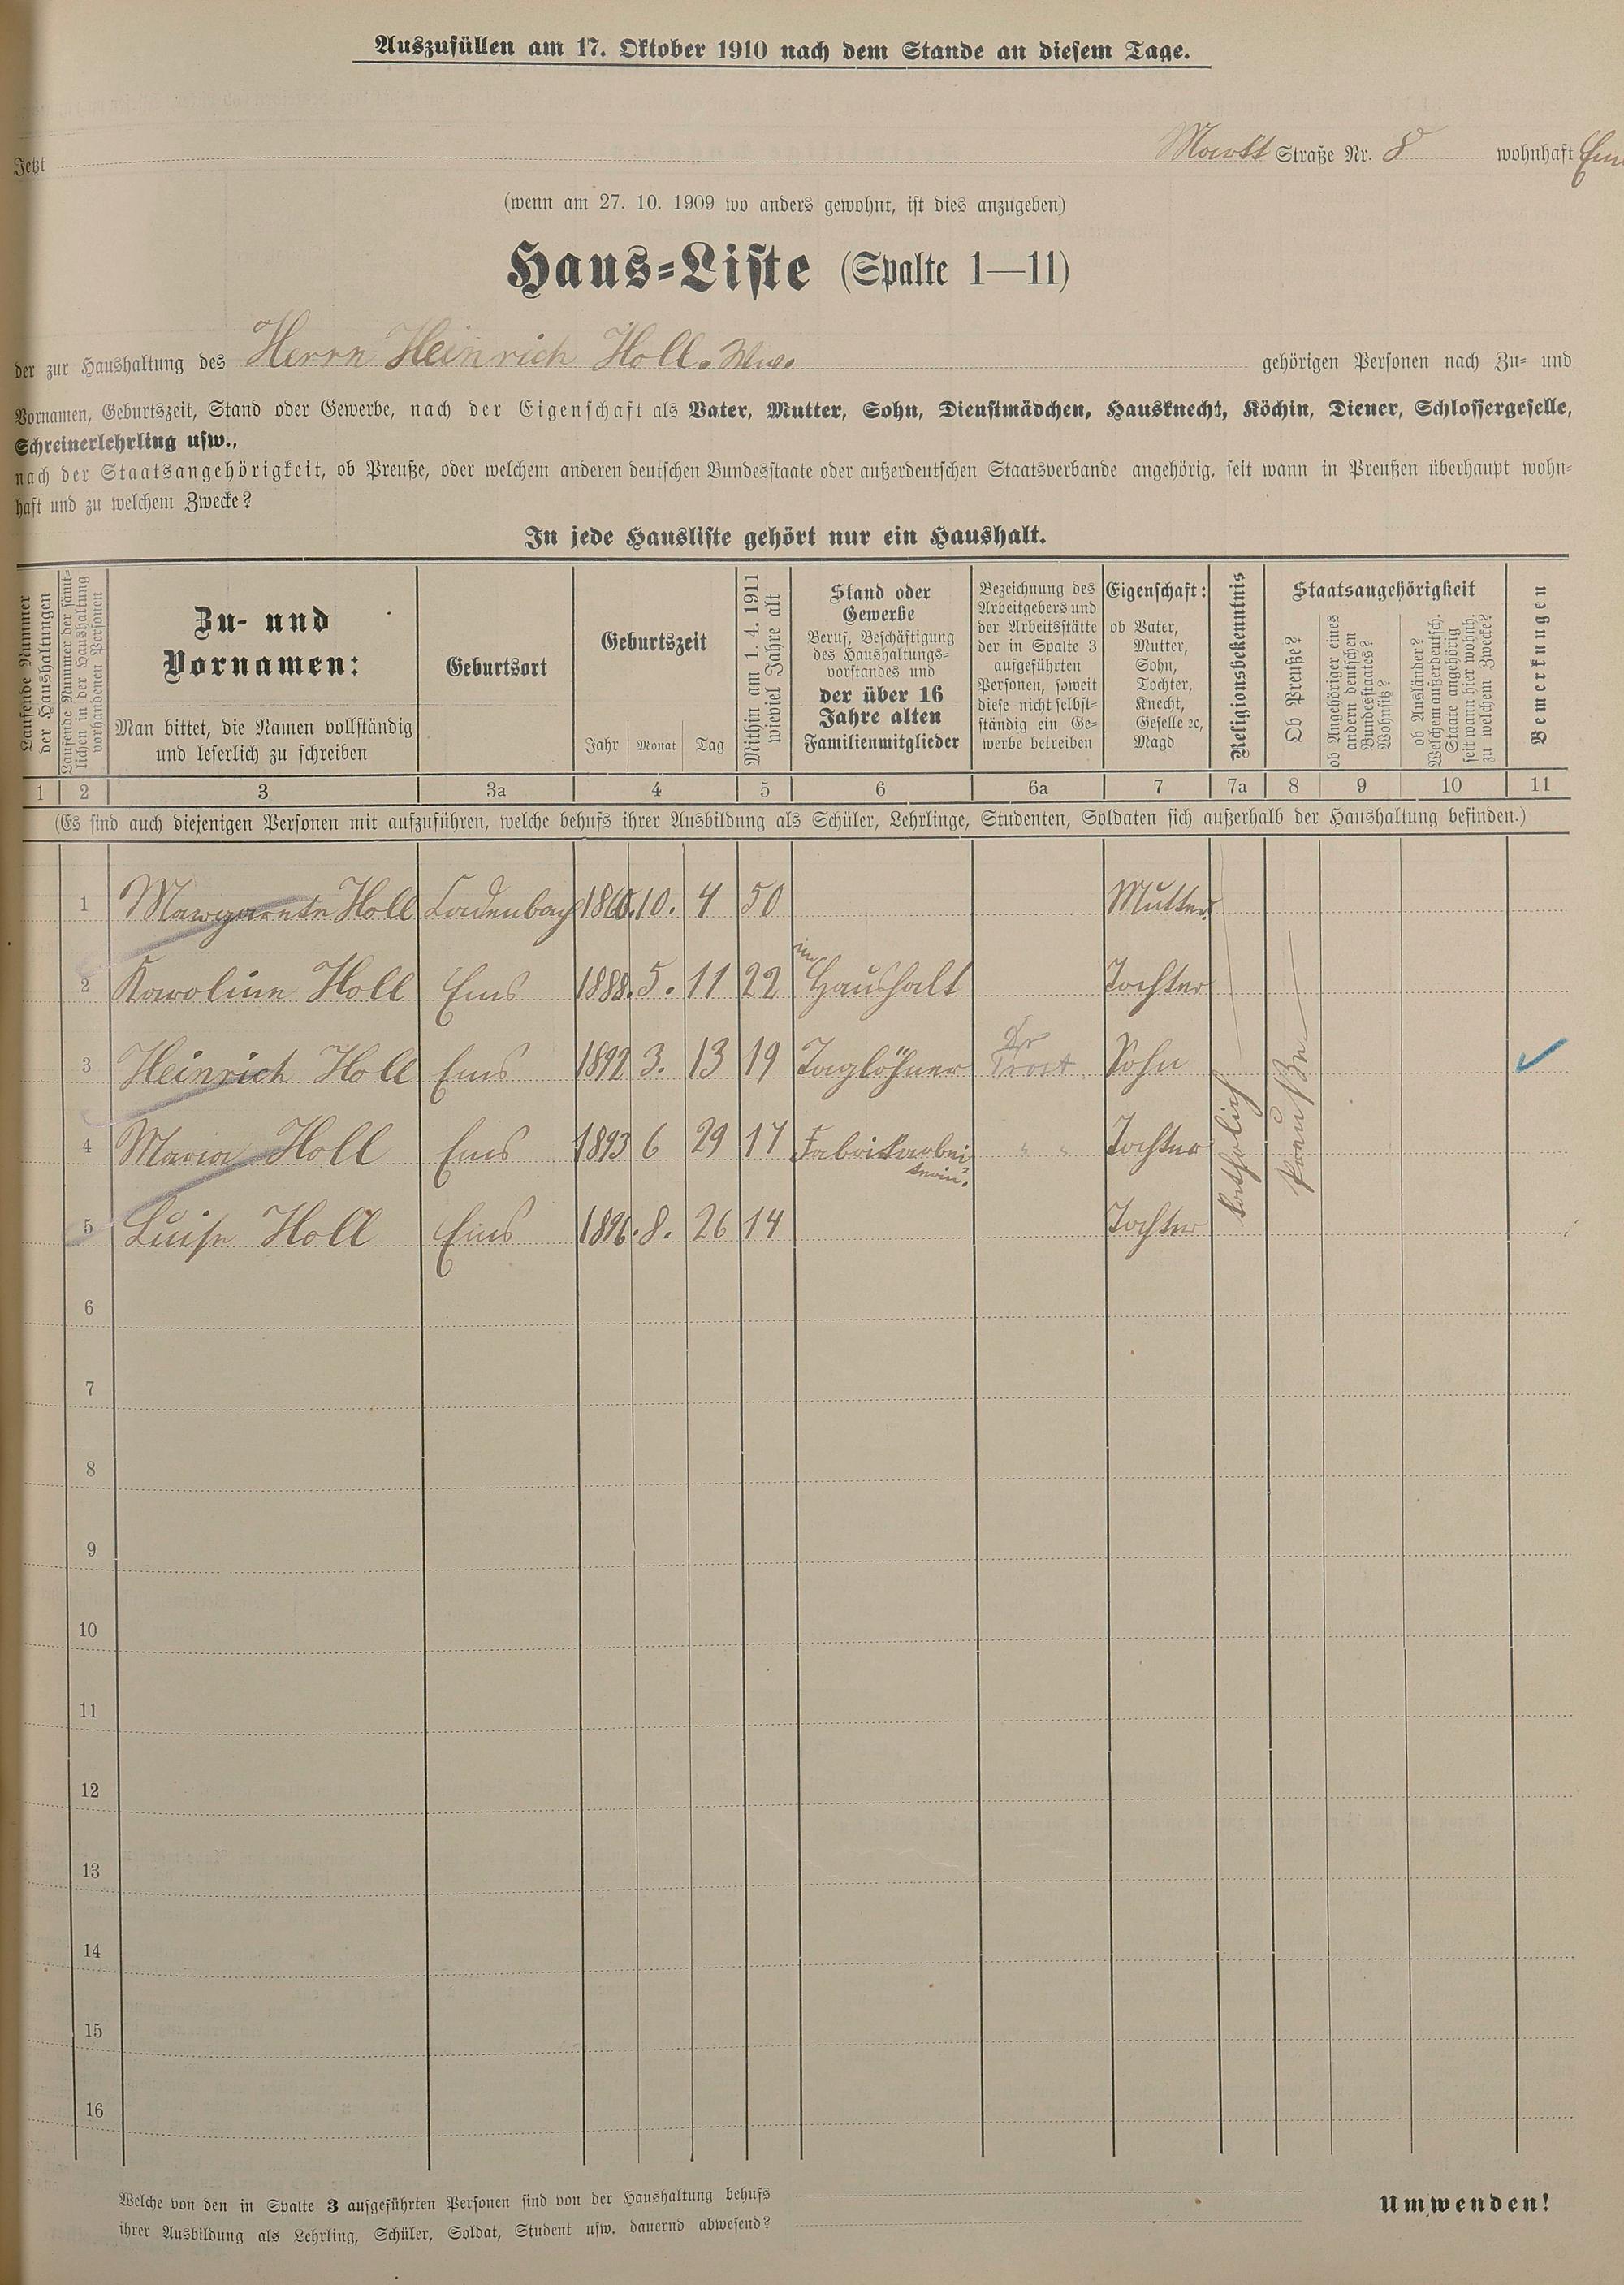 Auszufüllen am 17. Oktober 1910 nach dem Stande an diesem Tage.
Jetzt Markt Straße Nr. 8 wohnhaft Ems
(wenn am 27. 10. 1909 wo anders gewohnt, ist dies anzugeben)
Haus-Liste (Spalte 1—11)
der zur Haushaltung des Herrn Heinrich Holl. Wwe. gehörigen Personen nach Zu- und
Vornamen, Geburtszeit, Stand oder Gewerbe, nach der Eigenschaft als Vater, Mutter, Sohn, Dienstmädchen, Hausknecht, Köchin, Diener, Schlossergeselle,
Schreinerlehrling usw.,
nach der Staatsangehörigkeit, ob Preuße, oder welchem anderen deutschen Bundesstaate oder außerdeutschen Staatsverbande angehörig, seit wann in Preußen überhaupt wohn-
haft und zu welchem Zwecke?
In jede Hausliste gehört nur ein Haushalt.
Laufende Nummer
der Haushaltungen
Laufende Nummer der sämt-
lichen in der Haushaltung
vorhandenen Personen
Zu- und
Vornamen:
Man bittet, die Namen vollständig
und leserlich zu schreiben
Geburtsort
Geburtszeit
Jahr Monat Tag
Mithin am 1. 4. 1911
wieviel Jahre alt
Stand oder
Gewerbe
Beruf, Beschäftigung
des Haushaltungs-
vorstandes und
der über 16
Jahre alten
Familienmitglieder
Bezeichnung des
Arbeitgebers und
der Arbeitsstätte
der in Spalte 3
aufgeführten
Personen, soweit
diese nicht selbst-
ständig ein Ge-
werbe betreiben
Eigenschaft:
ob Vater,
Mutter,
Sohn,
Tochter,
Knecht,
Geselle ec,
Magd
Religionsbekenntnis
Staatsangehörigkeit
Ob Preuße?
ob Angehöriger eines
andern deutschen
Bundesstaates?
Wohnsitz?
ob Ausländer?
Welchem außerdeutsch.
Staate angehörig
seit wann hier wohnh.
zu welchem Zwecke?
Bemerkungen
1 2 3 3a 4 5 6 6a 7 7a 8 9 10 11
(Es sind auch diejenigen Personen mit aufzuführen, welche behufs ihrer Ausbildung als Schüler, Lehrlinge, Studenten, Soldaten sich außerhalb der Haushaltung befinden.)
1 Margarete Holl Ladenbach 1860. 10. 4 50 Mutter
2 Karoline Holl Ems 1888. 5. 11 22 im Haushalt Tochter
3 Heinrich Holl Ems 1892 3. 13 19 Taglöhner Sohn
4 Maria Holl Ems 1893 6 29 17 Fabrikarbei
terin. " " Tochter
5 Luise Holl Ems 1896. 8. 26 14 Tochter
katholisch
Preuße
6
7
8
9
10
11
12
13
14
15
16
Welche von den in Spalte 3 aufgeführten Personen sind von der Haushaltung behufs
ihrer Ausbildung als Lehrling, Schüler, Soldat, Student usw. dauernd abwesend?
Umwenden!